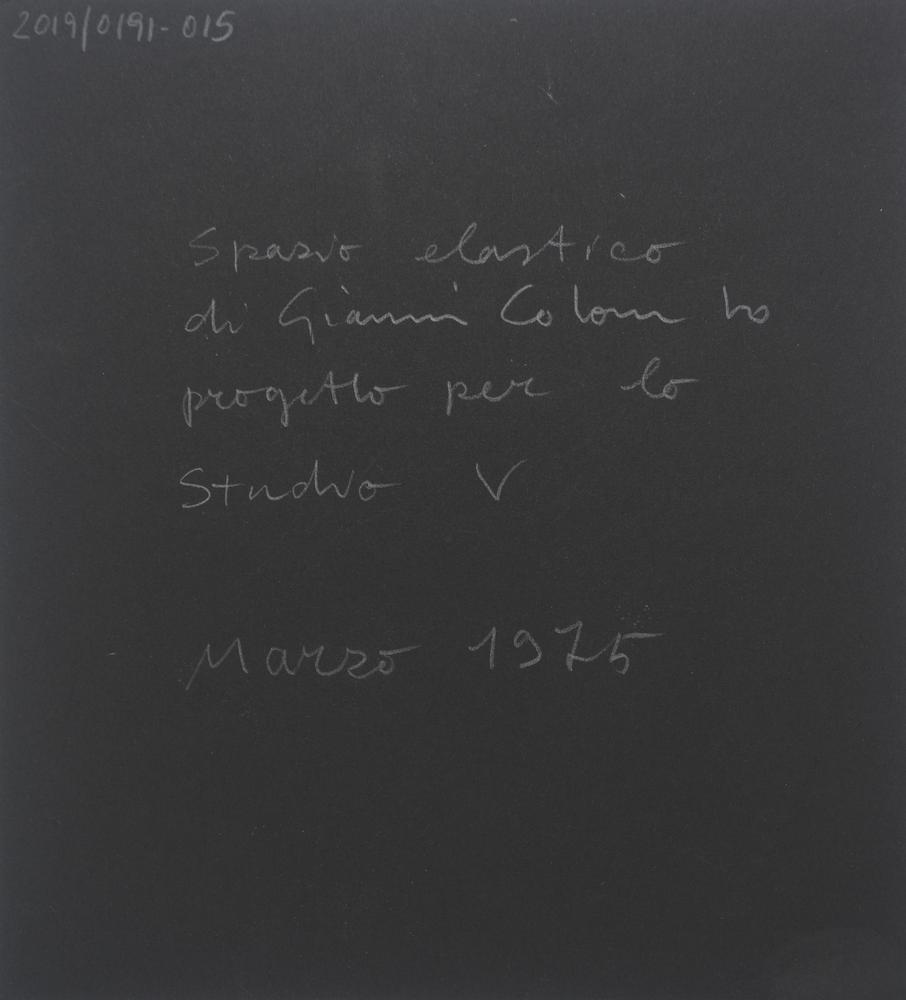 2019/0191-015
Spazio elastico
di Gianni Colombo
progetto per lo
Studio V
Marzo 1975